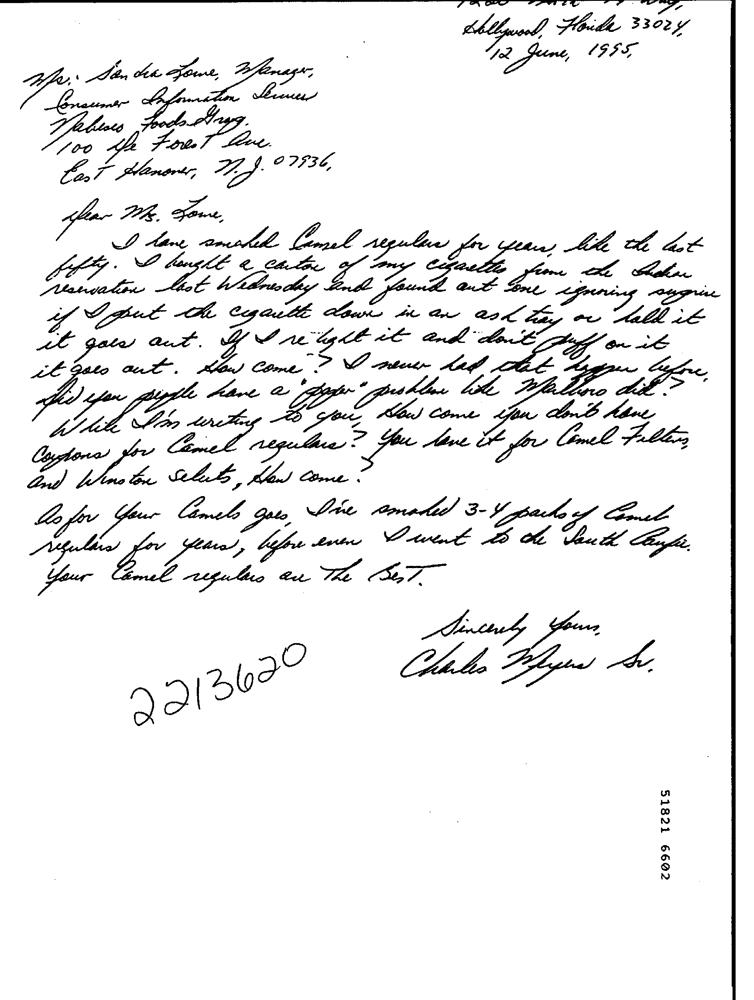 Hollywood, Florida 33024,
12 June, 1995,
Ms. Sandra Lowe, Manager,
Consumer Information Services
Nabisco Foods Group.
100 De Forest Ave.
East Hanover, N.J. 07936,
Dear Ms. Lowe,
I have smoked Camel regulars for years, like the last
fifty. I bought a carton of my cigarettes from the Indian
reservation last Wednesday and found out one ignoring surprise
if I put the cigarett down in an ash tray or hold it
it goes out. If I re light it and don't puff on it
it goes out. How come? I never had that happen before,
Did you people have a "paper" problem like Marlboro did?
While I'm writing to you, How come you don't have
coupons for Camel regulars? You have it for Camel Filters,
and Winston Selects, How come?
As for Your Camels goes, I've smoked 3-4 packs of Camel
regulars for years, before even I went to the South Pacific.
Your Camel regulars are The BesT.
Sincerely Yours,
Charles Myers Sr.
2213620
51821 6602